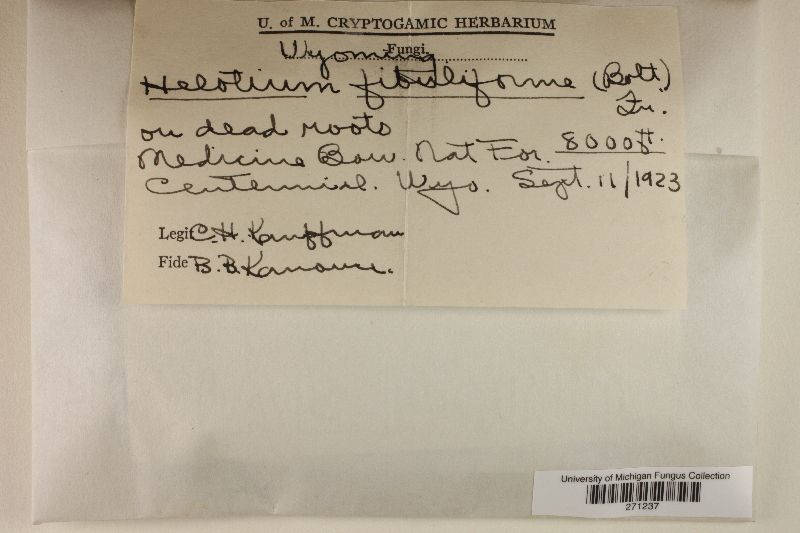 U. of M. CRYPTOGAMIC HERBARIUM
Fungi.
Wyoming
Helotium fibuliforme (Bolt)
Fr.
on dead roots
Medicine Bow. Nat For. 8000ft.
Centennial. Wyo. Sept. 11/1923
Legit C.H. Kauffman
Fide B.B. Kanouse.
University of Michigan Fungus Collection
271237